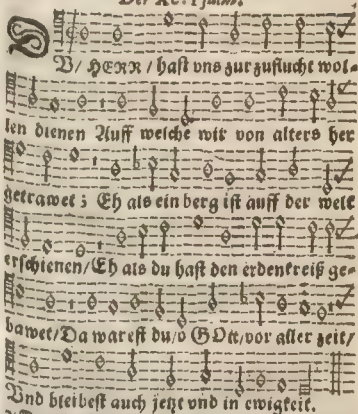 Der XC. Psalm.
DU/ HERR / hast vns zur zuflucht wol-
len dienen Auff welche wir von alters her
getrawet ; Eh als ein berg ist auff der welt
erschienen/Eh als du hast den erdenkreiß ge-
bawet/Da warest du/o GOtt/vor aller zeit/
Vnd bleibest auch jetzt vnd in ewigkeit.